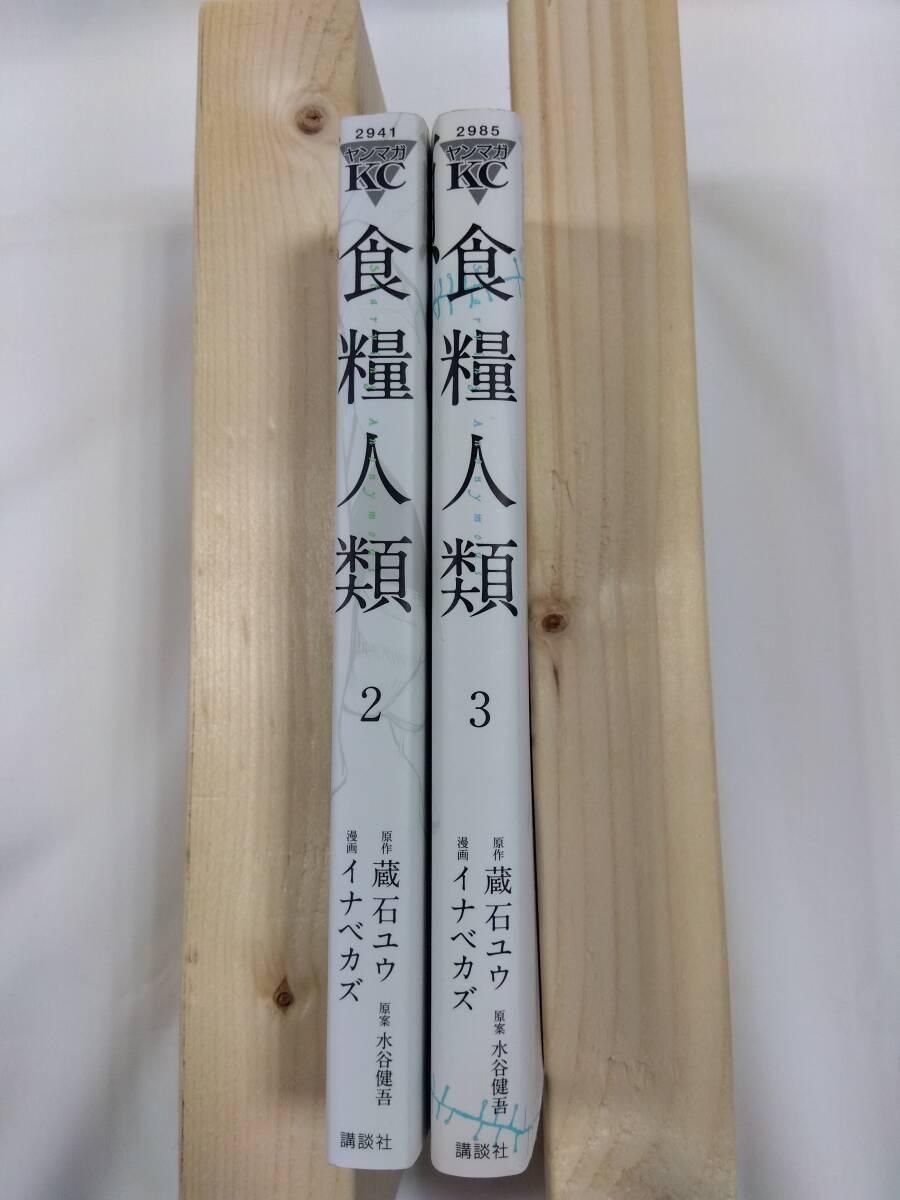 2941
ヤンマガ
KC
食糧人類
Starving Anonymous
2
原作 蔵石ユウ
漫画 イナベカズ
原案 水谷健吾
講談社
2985
ヤンマガ
KC
食糧人類
Starving Anonymous
3
原作 蔵石ユウ
漫画 イナベカズ
原案 水谷健吾
講談社